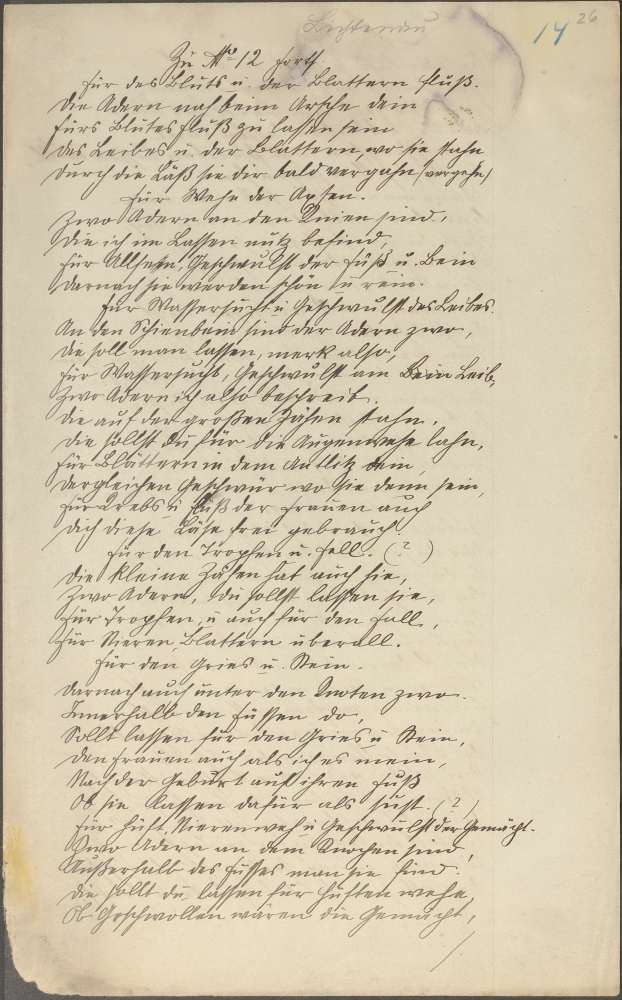 Lichtenau
14 26
Zu No 12 fortf
Für des Bluts u. der Blattern Fluß.
Die Adern nah beim Arsche dein
Fürs Blutes Fluß zu lassen sein
Des Leibes u. der Blattern, wo sie stahn
Durch die Läß sie dir bald vergahn (vergehn)
Für Wehe der Axsen.
Zwo Adern an den Knien sind,
Die ich im Lassen nutz befind,
Für Geschwulst der Füß u. Bein
Darnach sie werden schön u rein.
Für Wassersucht u Geschwulst des Leibes.
An den Schienbein sind der Adern zwo,
Die soll man lassen, merk also,
Für Wassersucht, Geschwulst am Bein Leib,
Zwo Adern ich also beschreib.
Die auf der großen Zähen stahn,
Die sollst du für die Augenwehe lahn,
Für Blattern in dem Antlitz dein,
Dergleichen Geschwür wo sie denn sein,
Für Krebs u Fluß der Frauen auch
Dich diese Läße frei gebrauch.
Für den Tropfen u. Fell. (?)
Die kleine Zähen hat auch hie,
Zwo Adern, du sollst lassen sie,
Für Tropfen, u auch für den Fall,
Für Nieren, Blattern überall.
Für den Gries u. Stein.
Darnach auch unter den Knoten zwo.
Innerhalb den Füssen do,
Sollt lassen für den Gries u Stein,
Den Frauen auch als ich es mein,
Nach der Geburt auf ihren Fuß
Ob sie lassen dafür als sust. (?)
Für Hüft, Nierenweh u Geschwulst der Gemächt.
Zwo Adern an dem Knochen sind,
Außerhalb des Fusses man sie find.
Die sollt du lassen für Hüften wehe,
Ob Geschwollen wären die Gemächt,